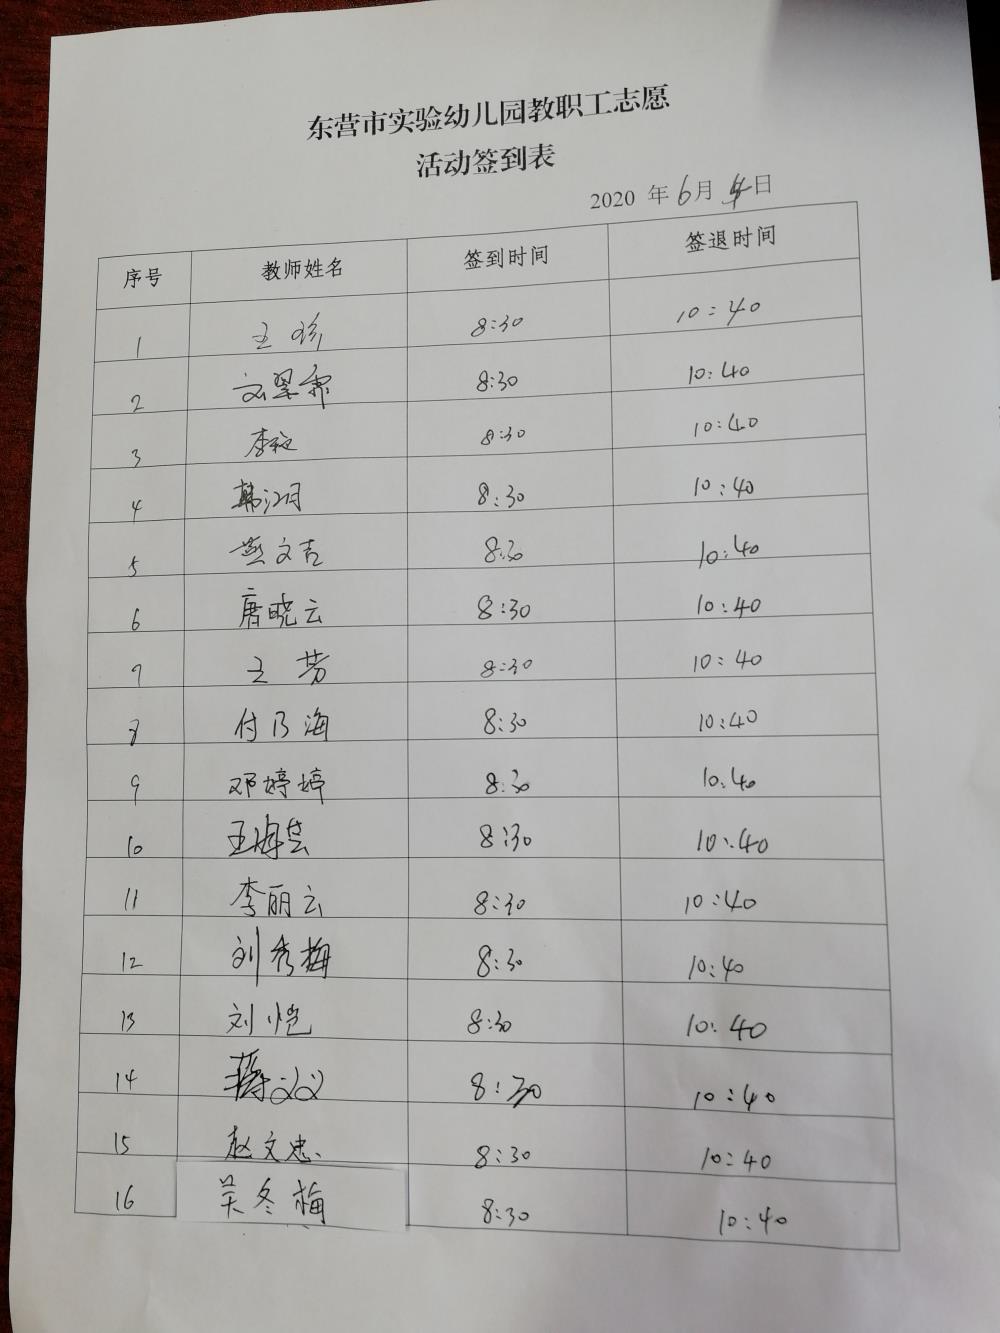 东营市实验幼儿园教职工志愿
活动签到表
2020 年 6月 4日
序号 教师姓名 签到时间 签退时间
1 王 8:30 10:40
2 8:30 10:40
3 李 8:30 10:40
4 韩江月 8:30 10:40
5 燕文吉 8:30 10:40
6 唐晓云 8:30 10:40
7 王芳 8:30 10:40
8 付乃海 8:30 10:40
9 邓婷婷 8:30 10:40
10 王海芸 8:30 10:40
11 李丽云 8:30 10:40
12 刘秀梅 8:30 10:40
13 刘恺 8:30 10:40
14 8:30 10:40
15 赵文忠 8:30 10:40
16 吴冬梅 8:30 10:40